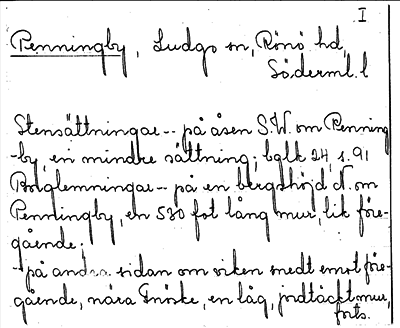 I
Penningby, Ludgo sn, Rönö hd,
Söderml. l
Stensättningar -- på åsen S.W. om Penning
-by, en mindre sättning; bglk 24, s. 91
Borglemningar -- på en bergshöjd N. om
Penningby, en 530 fot lång mur, lik före-
gående;
-- på andra sidan om viken snedt emot före-
gående, nära Fröske, en låg, jordtäckt mur,
forts.